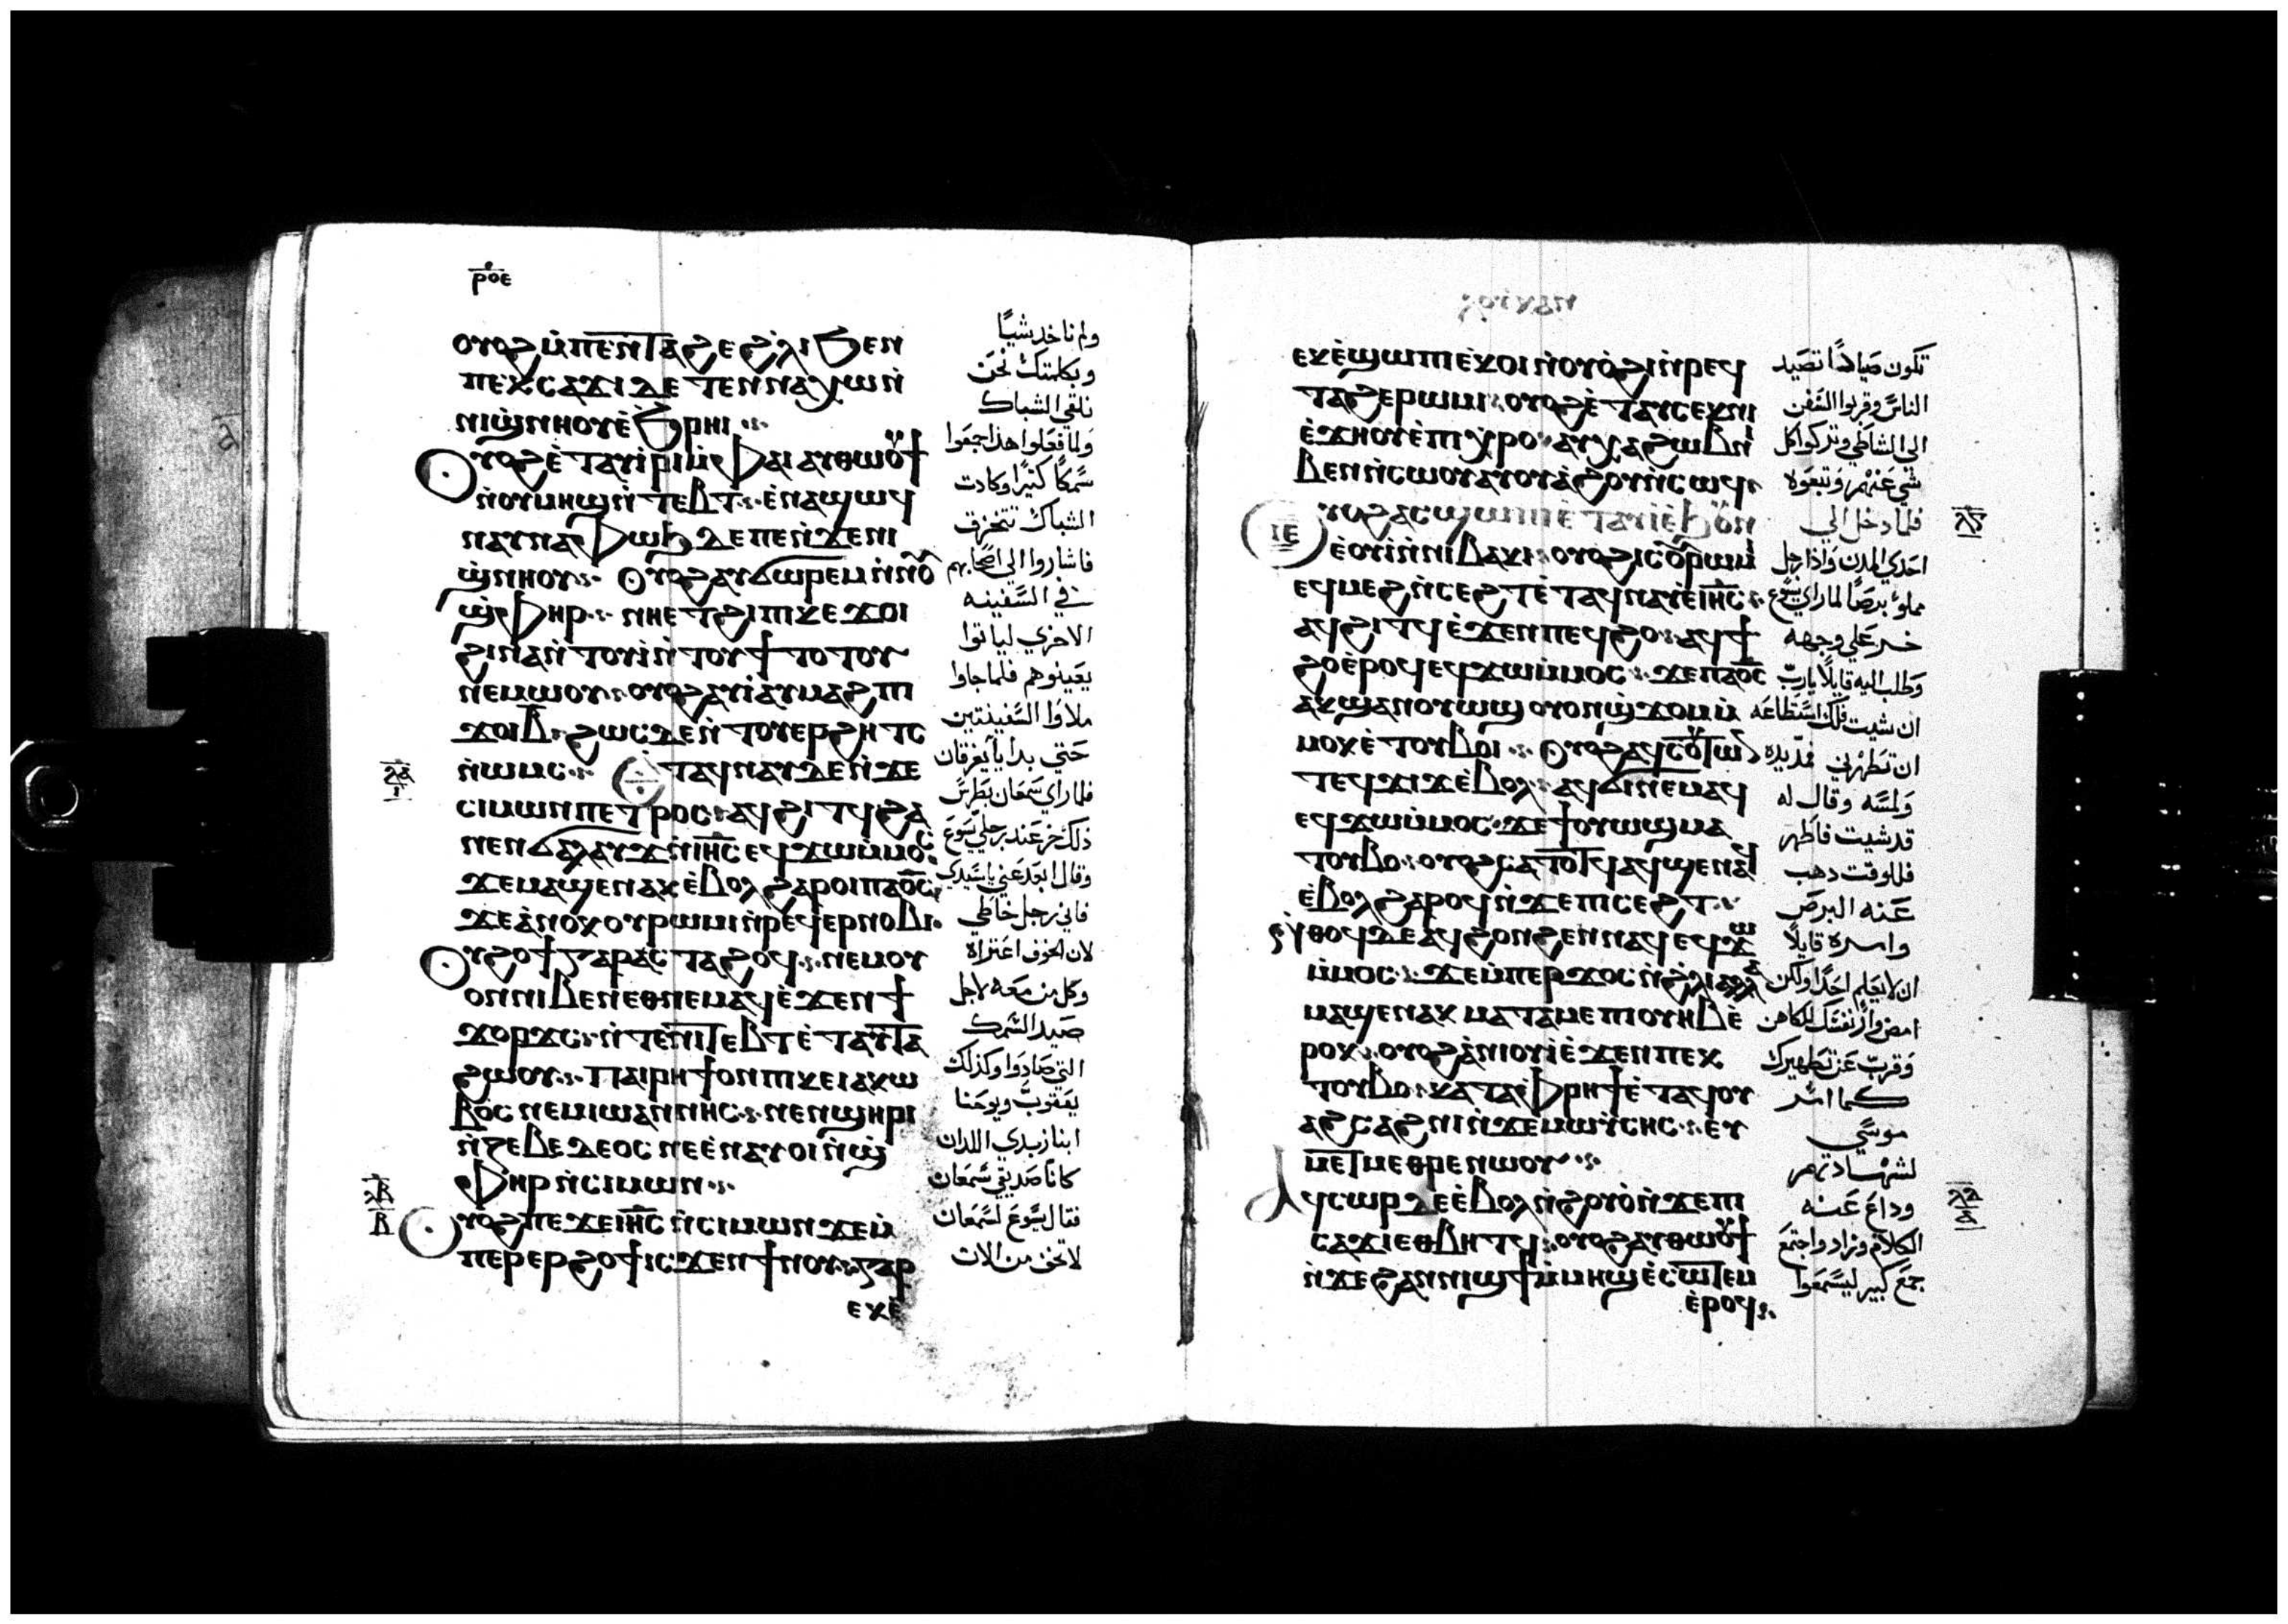 ⲣⲟⲉ
ⲟⲩⲟϩ ⲙ̀ⲡⲉⲛⲧⲁϩⲉ ϩ̀ⲗⲓ ϧⲉⲛ
ⲡⲉⲕⲥⲁϫⲓ ⲇⲉ ⲧⲉⲛⲛⲁⲭⲱⲛ̀
ⲛⲓϣ̀ⲛⲏⲟⲩ ⲉ̀ϧⲣⲏⲓ
ⲟⲩⲟϩ ⲉ̀ⲧⲁⲩⲓ̀ⲣⲓ ⲙ̀ⲫⲁⲓ ⲁⲩⲑⲱⲟⲩϯ
ⲛ̀ⲟⲩⲙⲏϣ ⲛ̀ⲧⲉⲃⲧ ⲉ̀ⲛⲁϣⲱϥ
ⲛⲁⲩⲛⲁⲫⲱϧ ⲇⲉ ⲡⲉ ⲛ̀ϫⲉⲛⲓ
ϣ̀ⲛⲏⲟⲩ ⲟⲩⲟϩ ⲁⲩϭⲱⲣⲉⲙ ⲛ̀ⲛⲟⲩ
ϣ̀ⲫⲏⲣ ⲛⲏⲉⲧϩⲓ ⲡⲓⲕⲉϫⲟⲓ
ϩⲓⲛⲁ ⲛ̀ⲧⲟⲩⲓ̀ ⲛ̀ⲧⲟⲩϯⲧⲟⲧⲟⲩ
ⲛⲉⲙⲱⲟⲩ ⲟⲩⲟϩ ⲁⲩⲓ̀ ⲁⲩⲙⲁϩ ⲡⲓ
ϫⲟⲓ ⲃ̅ ϩⲱⲥⲇⲉ ⲛ̀ⲧⲟⲩⲉⲣϩⲏⲧⲥ
ⲛ̀ⲱⲙⲥ ⲉⲧⲁϥⲛⲁⲩ ⲇⲉ ⲛ̀ϫⲉ
ⲥⲓⲙⲱⲛ ⲡⲉⲧⲣⲟⲥ ⲁϥϩⲓⲧϥ ϩⲁ
ⲛⲉⲛϭⲁⲗⲁⲩϫ ⲛ̀ⲓⲏ̅ⲥ̅ ⲉϥϫⲱⲙ̀ⲙⲟⲥ
ϫⲉ ⲙⲁϣⲉⲛⲁⲕ ⲉ̀ⲃⲟⲗ ϩⲁⲣⲟⲓ ⲡⲁⲟ̅ⲥ̅
ϫⲉ ⲁ̀ⲛⲟⲕ ⲟⲩⲣⲱⲙⲓ ⲛ̀ⲣⲉϥⲉⲣⲛⲟⲃⲓ
ⲟⲩϩⲟϯ ⲅⲁⲣ ⲁⲥⲧⲁϩⲟϥ ⲛⲉⲙ ⲟⲩ
ⲟⲛ ⲛⲓⲃⲉⲛ ⲉⲑⲛⲉⲙⲁϥ ⲉ̀ϫⲉⲛ ϯ
ϫⲟⲣϫⲥ ⲛ̀ⲧⲉ ⲛⲓⲧⲉⲃⲧ ⲉ̀ⲧⲁⲩⲧⲁ
ϩⲱⲟⲩ ⲡⲁⲓⲣⲏϯ ⲟⲛ ⲡⲓⲕⲉⲓⲁⲕⲱ
ⲃⲟⲥ ⲛⲉⲙ ⲓⲱⲁⲛⲛⲏⲥ ⲛⲉⲛϣⲏⲣⲓ
ⲛ̀ⲍⲉⲃⲉⲇⲉⲟⲥ ⲛⲉ ⲉ̀ⲛⲁⲩⲟⲓ ⲛ̀ϣ
ⲫⲏⲣ ⲛ̀ⲥⲓⲙⲱⲛ
ⲟⲩⲟϩ ⲡⲉϫⲉ ⲓⲏ̅ⲥ̅ ⲛ̀ⲥⲓⲙⲱⲛ ϫⲉ ⲙ̀
ⲡⲉⲣⲉⲣϩⲟϯ ⲓⲥϫⲉⲛ ϯⲛⲟⲩ ⲅⲁⲣ
ⲉⲕⲉ̀
ولم ناخد شيئاً
وبكلمتك نحن
نلقي الشباك
ولما فعلوا هذا جمعوا
سمكاً كثيراً وكادت
الشباك تتخرق
فاشاروا الي اصحابهم
في السفينه
الاخري لياتوا
يعينوهم فلما جاوا
ملاوا السفينتين
حتي بدايا يغرقان
فلما راي سمعان بطرس
ذلك خر عند رجلي يسوع
وقال ابعد عني ياسيدي
فاني رجل خاطي
لان الخوف اعتراه
وكل من معه لاجل
صيد السمك
التي صادوا وكذلك
يعقوب ويوحنا
ابنا زبدي اللدان
كانا صديقي سمعان
فقال يسوع لسمعان
لا تخف من الان
ⲉⲕⲉ̀ϣⲱⲡⲓ ⲉⲕⲟⲓ ⲛ̀ⲟⲩⲟ̀ϩⲓ ⲛ̀ⲣⲉϥ
ⲧⲁϩⲉ ⲣⲱⲙⲓ ⲟⲩⲟϩ ⲉ̀ⲧⲁⲩⲥⲉⲕ ⲛⲓ
ⲉ̀ϫⲏⲟⲩ ⲉ̀ⲡⲓⲭⲣⲟ ⲁⲩⲭⲁ ϩⲱⲃ ⲛⲓ
ⲃⲉⲛ ⲛ̀ⲥⲱⲟⲩ ⲁⲩⲟⲩⲁϩⲟⲩ ⲛ̀ⲥⲱϥ
ⲓⲉ
ⲟⲩⲟϩ ⲁⲥϣⲱⲡⲓ ⲉⲧⲁϥⲓ̀ ⲉ̀ϧⲟⲩⲛ
ⲉ̀ⲟⲩⲓ̀ ⲛ̀ⲛⲓⲃⲁⲕⲓ ⲟⲩⲟϩ ⲓⲥ ⲟⲩⲣⲱⲙⲓ
ⲉϥⲙⲉϩ ⲛ̀ⲥⲉϩⲧ ⲉ̀ⲧⲁϥⲛⲁⲩ ⲉ̀ⲓⲏ̅ⲥ̅
ⲁϥϩⲓⲧϥ ⲉ̀ϫⲉⲛ ⲡⲉϥϩⲟ ⲁϥϯ
ϩⲟ ⲉ̀ⲣⲟϥ ⲉϥϫⲱⲙ̀ⲙⲟⲥ ϫⲉ ⲡⲁⲟ̅ⲥ̅
ⲁⲕϣⲁⲛⲟⲩⲱϣ ⲟⲩⲟⲛ ϣ̀ϫⲟⲙ ⲙ̀
ⲙⲟⲕ ⲉ̀ⲧⲟⲩⲃⲟⲓ ⲟⲩⲟϩ ⲁϥⲥⲟⲩⲧⲱⲛ
ⲧⲉϥϫⲓϫ ⲉ̀ⲃⲟⲗ ⲁϥϭⲓ ⲛⲉⲙⲁϥ
ⲉϥϫⲱⲙ̀ⲙⲟⲥ ϫⲉ ϯⲟⲩⲱϣ ⲙⲁ
ⲧⲟⲩⲃⲟ ⲟⲩⲟϩ ⲥⲁⲧⲟⲧϥ ⲁϥϣⲉⲛⲁϥ
ⲉ̀ⲃⲟⲗ ϩⲁⲣⲟϥ ⲛ̀ϫⲉ ⲡⲓⲥⲉϩⲧ
ⲛ̀ⲑⲟϥ ⲇⲉ ⲁϥϩⲟⲛϩⲉⲛ ⲛⲁϥ ⲉϥϫⲱ
ⲙ̀ⲙⲟⲥ ϫⲉ ⲙ̀ⲡⲉⲣϫⲟⲥ ⲛ̀ϩ̀ⲗⲓ ⲁⲗⲗⲁ
ⲙⲁϣⲉⲛⲁⲕ ⲙⲁⲧⲁⲙⲉ ⲡⲓⲟⲩⲏⲃ ⲉ̀
ⲣⲟⲕ ⲟⲩⲟϩ ⲁ̀ⲛⲓⲟⲩⲓ̀ ⲉ̀ϫⲉⲛ ⲡⲉⲕ
ⲧⲟⲩⲃⲟ ⲕⲁⲧⲁ ⲫ̀ⲣⲏϯ ⲉ̀ⲧⲁϥⲟⲩ
ⲁϩⲥⲁϩⲛⲓ ⲛ̀ϫⲉ ⲙⲱⲩ̀ⲥⲏⲥ ⲉⲩ
ⲙⲉⲧⲙⲉⲑⲣⲉ ⲛⲱⲟⲩ
ⲁϥⲥⲱⲣ ⲇⲉ ⲉ̀ⲃⲟⲗ ⲛ̀ϩⲟⲩⲟ̀ ⲛ̀ϫⲉ ⲡⲓ
ⲥⲁϫⲓ ⲉⲑⲃⲏⲧϥ ⲟⲩⲟϩ ⲁⲩⲑⲱⲟⲩϯ
ⲛ̀ϫⲉ ϩⲁⲛⲛⲓϣϯ ⲙ̀ⲙⲏϣ ⲉ̀ⲥⲱⲧⲉⲙ
ⲉ̀ⲣⲟϥ
تكون صياداً تصيد
الناس وقربوا السفن
الي الشاطي وتركوا كل
شي عنهم وتبعوه
فلما دخل الي
احدي المدن واذا رجل
مملوء برصاً لما راي يسوع
خر علي وجهه
وطلب اليه قايلاً يارب
ان شيت فلك استطاعه
ان تطهرني فمد يده
ولمسه وقال له
قد شيت فاطهر
فللوقت دهب
عنه البرص
وامره قايلاً
ان لا يعلم احداً ولكن
امض وار نفسك للكاهن
وقرب عن تطهيرك
كما امر
موسي
لشهادتهم
وداع عنه
الكلام وزاد واجتمع
جمع كبير ليسمعوا